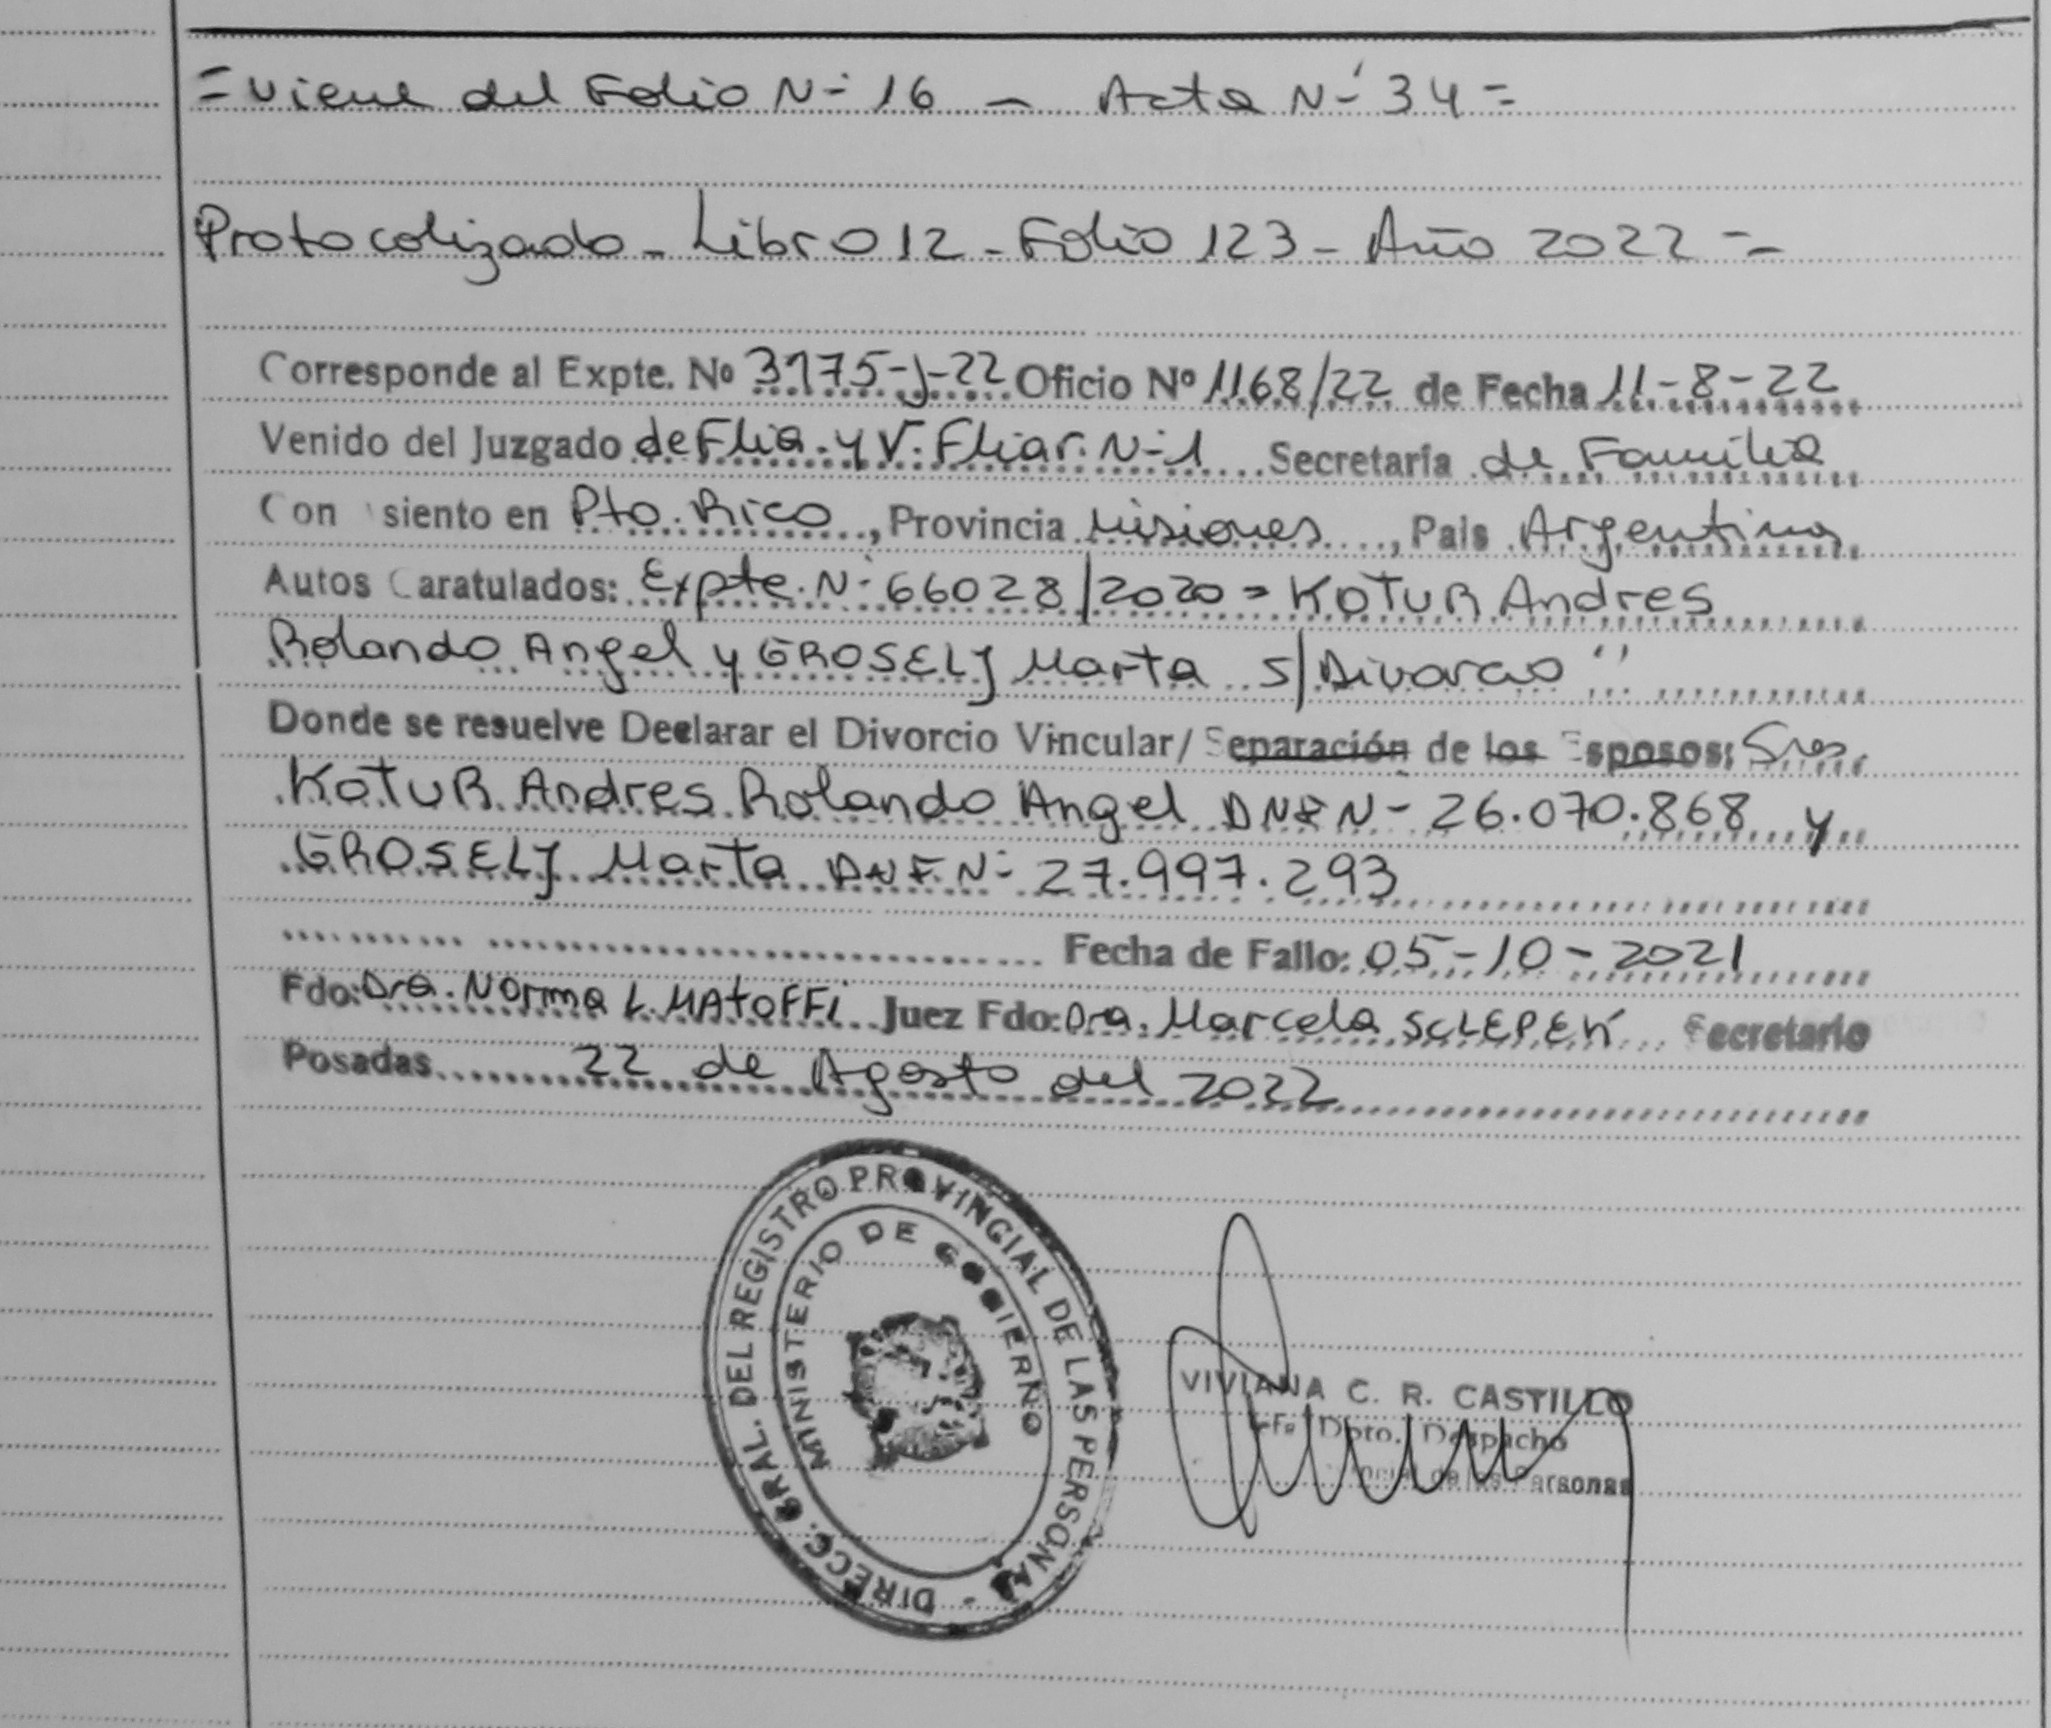 = Viene del Folio N- 16 - Acta N- 34 =
Protocolizado - Libro 12 - Folio 123 - Año 2022 =
Corresponde al Expte. Nº 3175-J-22 Oficio Nº 1168/22 de Fecha 11-8-22
Venido del Juzgado de Flia. y V. Fliar. N-1 Secretaría de Familia
Con siento en Pto. Rico, Provincia Misiones, Pais Argentina
Autos Caratulados: Expte. N- 66028/2020 = KOTUR Andres
Rolando Angel y GROSELJ Marta s/Divorcio "
Donde se resuelve Declarar el Divorcio Vincular/ Separación de los Esposos: Sres.
KOTUR Andres Rolando Angel DNI N- 26.070.868 y
GROSELJ Marta DNI. N- 27.997.293
Fecha de Fallo: 05-10-2021
Fdo: Dra. Norma L. MATOFFI Juez Fdo: Dra. Marcela SCLEPEK Secretario
Posadas 22 de Agosto del 2022
DIRECC. GRAL. DEL REGISTRO PROVINCIAL DE LAS PERSONAS -
MINISTERIO DE GOBIERNO
VIVIANA C. R. CASTILLO
Dpto. Despacho
de las Personas